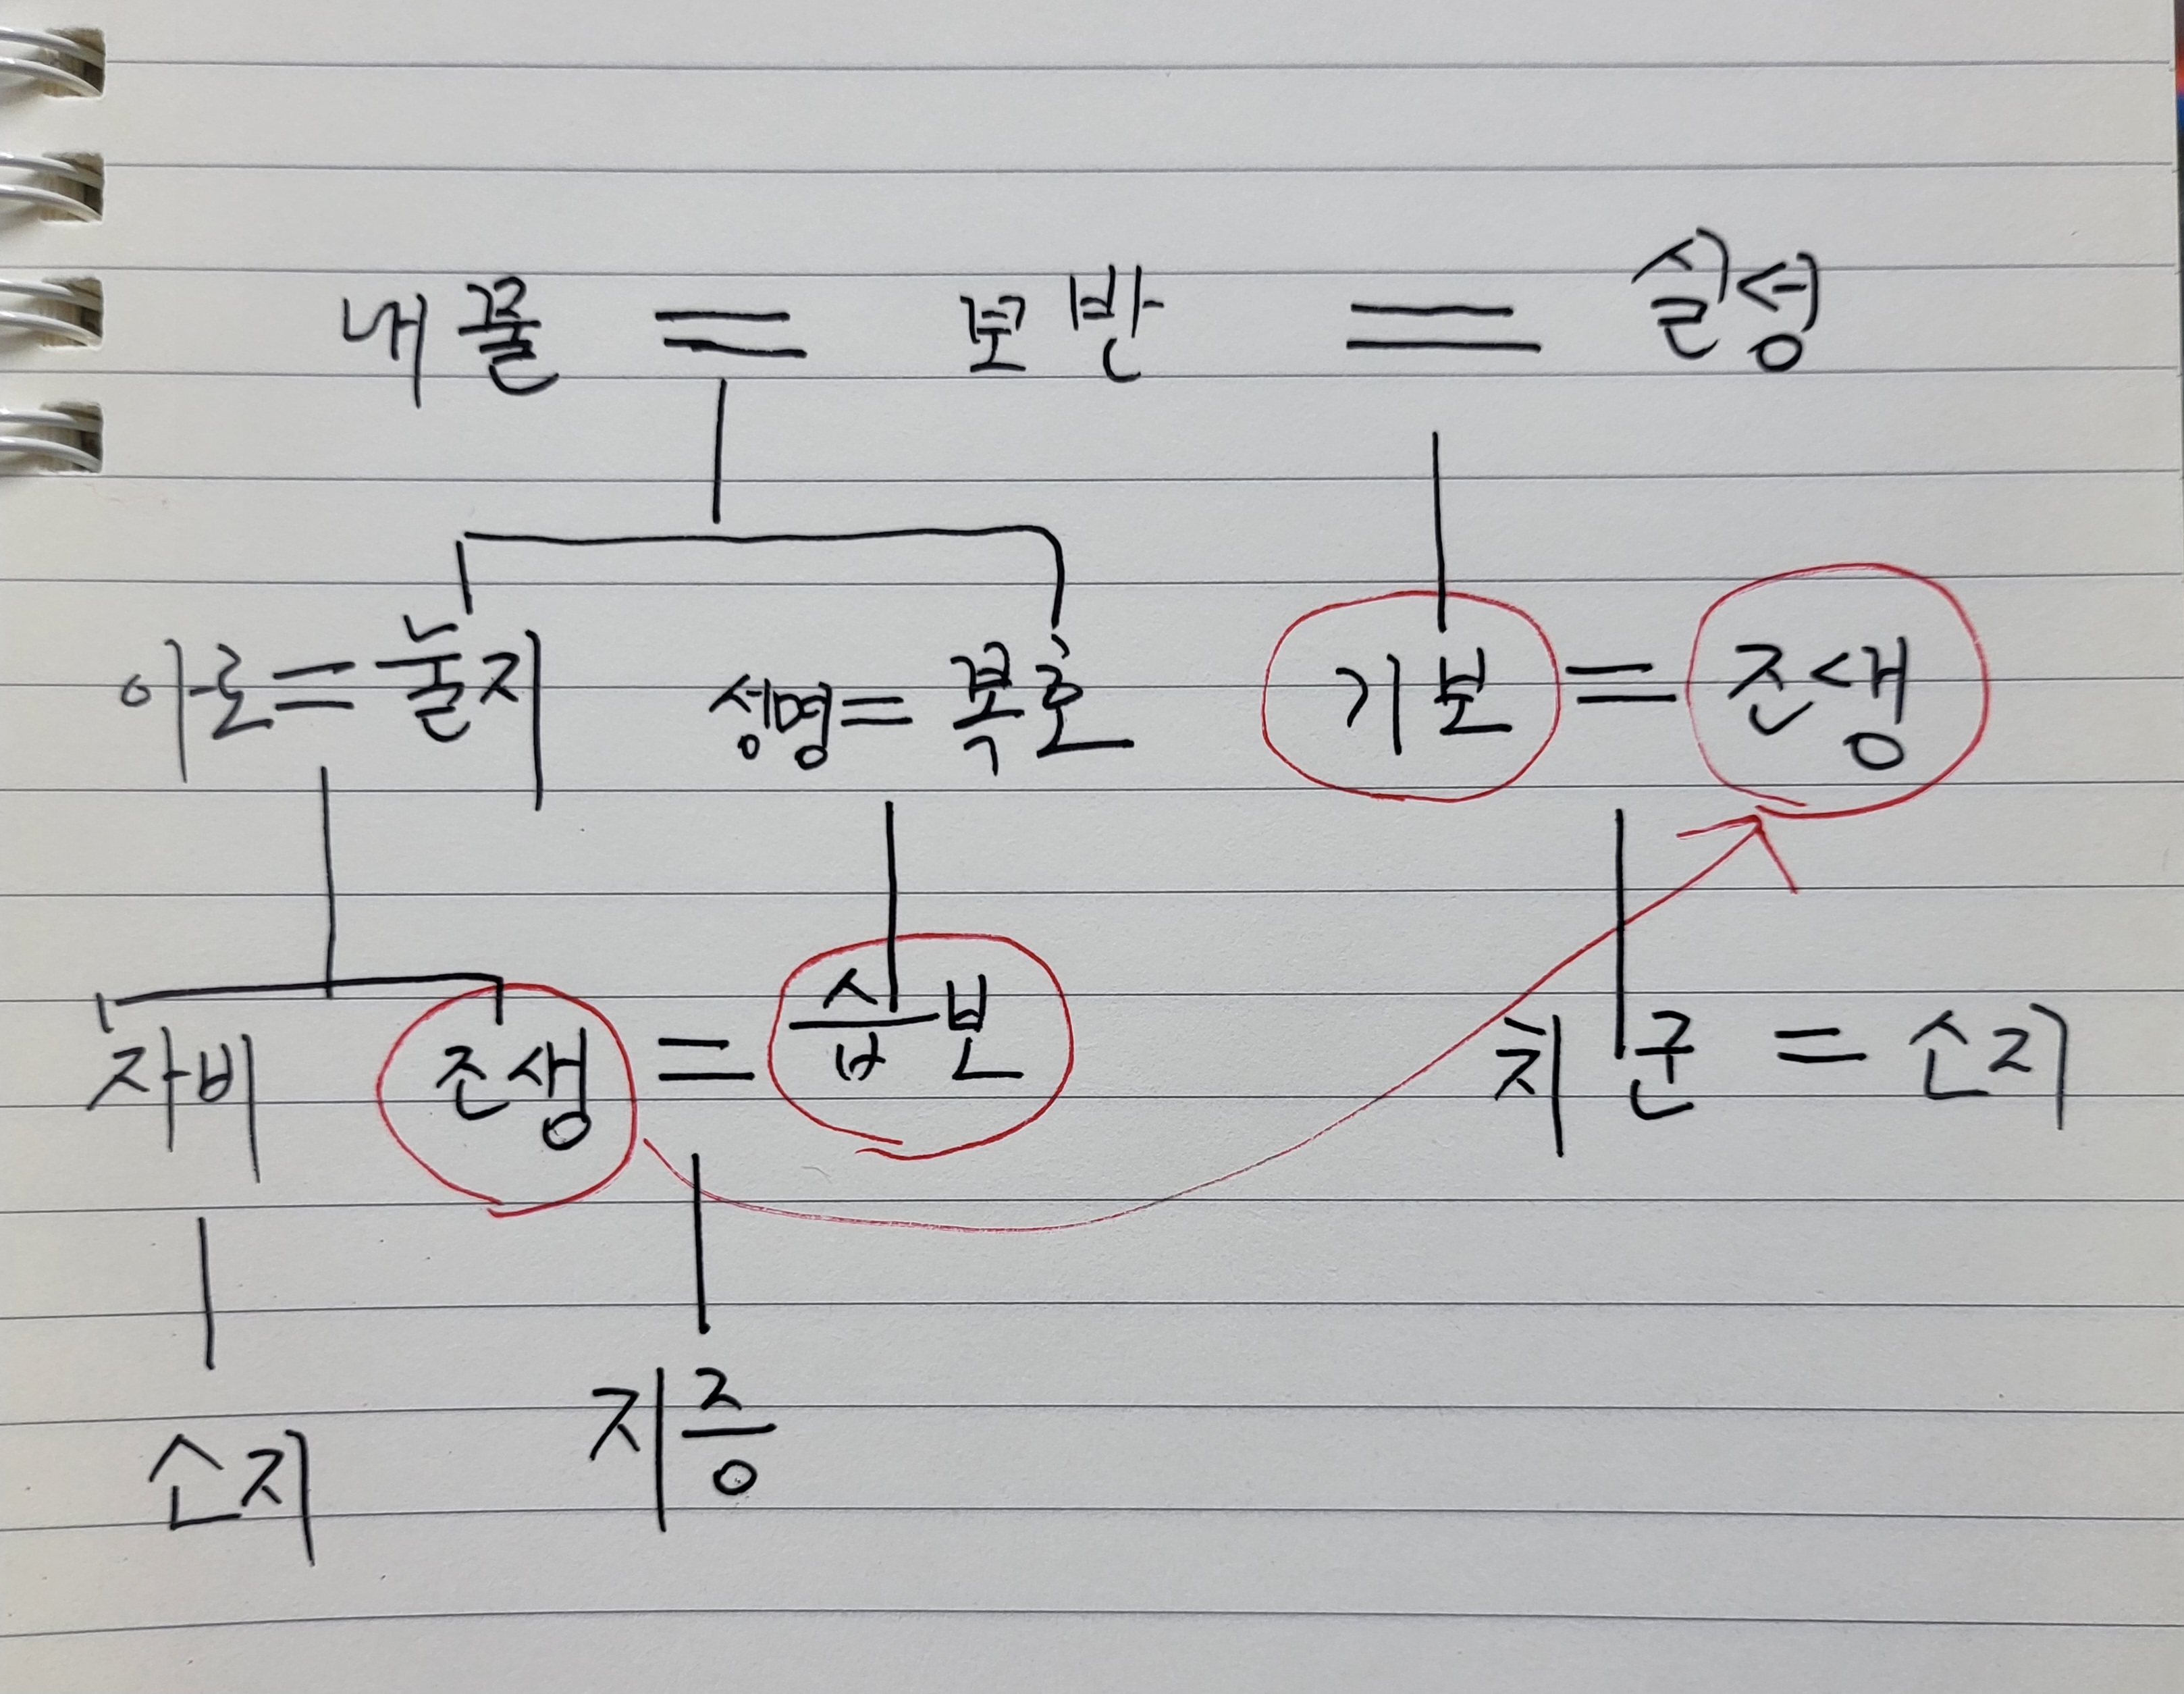 내물 = 보반 = 실성
아로 = 눌지 성명 = 복호 기보 = 조생
자비 조생 = 습보 치군 = 소지
소지 지증